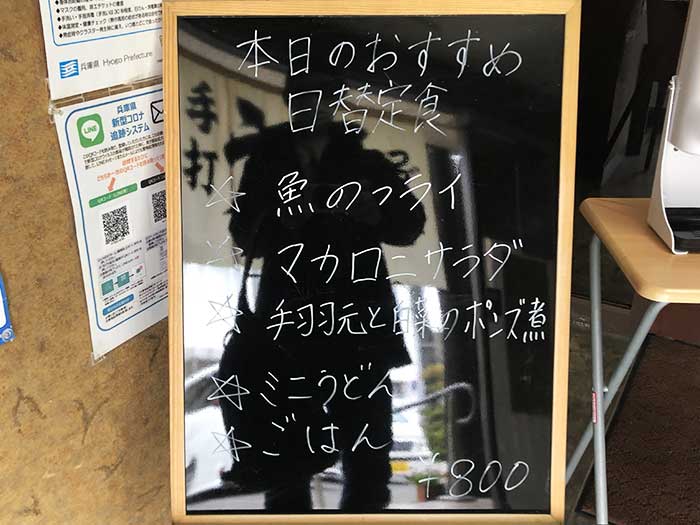 兵庫県 Hyogo Prefecture
LINE
兵庫県
新型コロナ
追跡システム
本日のおすすめ
日替定食
手打
☆ 魚のフライ
☆ マカロニサラダ
☆ 手羽元と白菜のポンズ煮
☆ ミニうどん
☆ ごはん
¥800